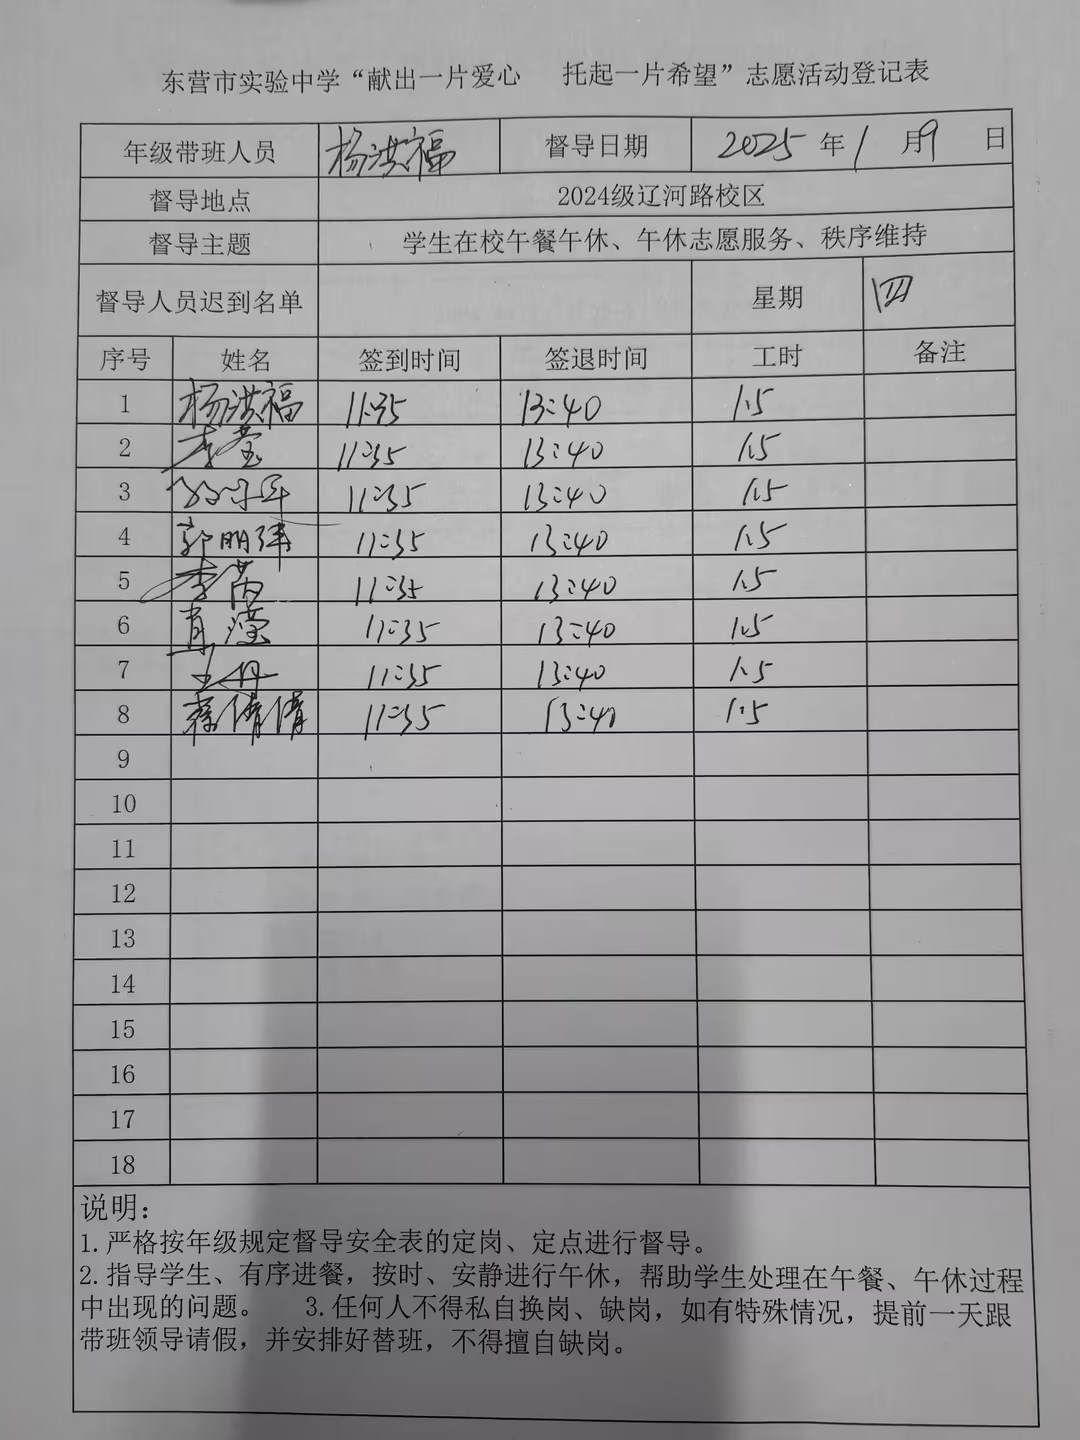 东营市实验中学“献出一片爱心 托起一片希望”志愿活动登记表
年级带班人员 杨洪福 督导日期 2025 年 1 月 9 日
督导地点 2024级辽河路校区
督导主题 学生在校午餐午休、午休志愿服务、秩序维持
督导人员迟到名单 星期 四
序号 姓名 签到时间 签退时间 工时 备注
1 杨洪福 11:35 13:40 1.5
2 李莹 11:35 13:40 1.5
3 11:35 13:40 1.5
4 郭明强 11:35 13:40 1.5
5 李茵 11:35 13:40 1.5
6 肖滢 11:35 13:40 1.5
7 王丹 11:35 13:40 1.5
8 倩倩 11:35 13:40 1.5
9
10
11
12
13
14
15
16
17
18
说明：
1.严格按年级规定督导安全表的定岗、定点进行督导。
2.指导学生、有序进餐，按时、安静进行午休，帮助学生处理在午餐、午休过程
中出现的问题。 3.任何人不得私自换岗、缺岗，如有特殊情况，提前一天跟
带班领导请假，并安排好替班，不得擅自缺岗。